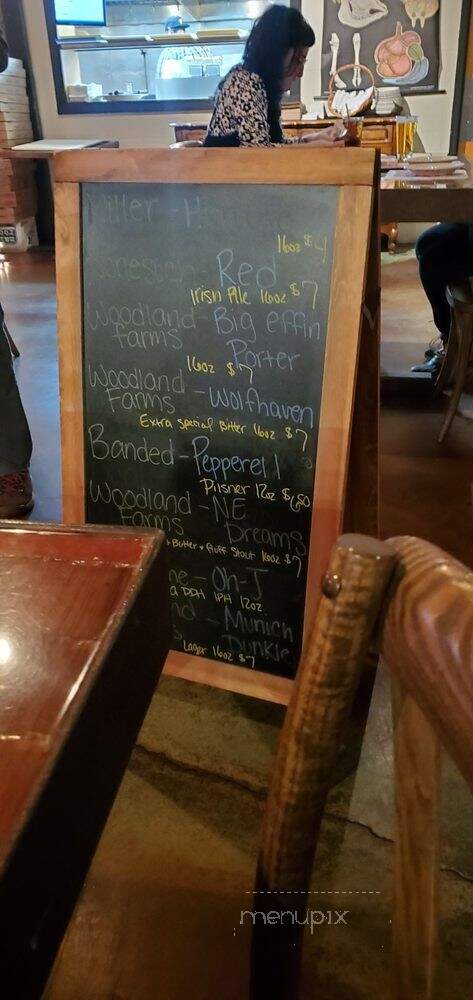 Miller - High
16oz $4
Red
Irish Ale 16oz $7
Woodland - Big effin
Farms Porter
16oz $7
Woodland - Wolfhaven
Farms
Extra Special Bitter 16oz $7
Banded - Pepperell
Pilsner 12oz $6.50
Woodland - NE
Farms Dreams
Butter + Fluff Stout 16oz $7
ne - Oh-J
a DDH IPA 12oz
nd - Munich
s Dunkle
Lager 16oz $7
menupix